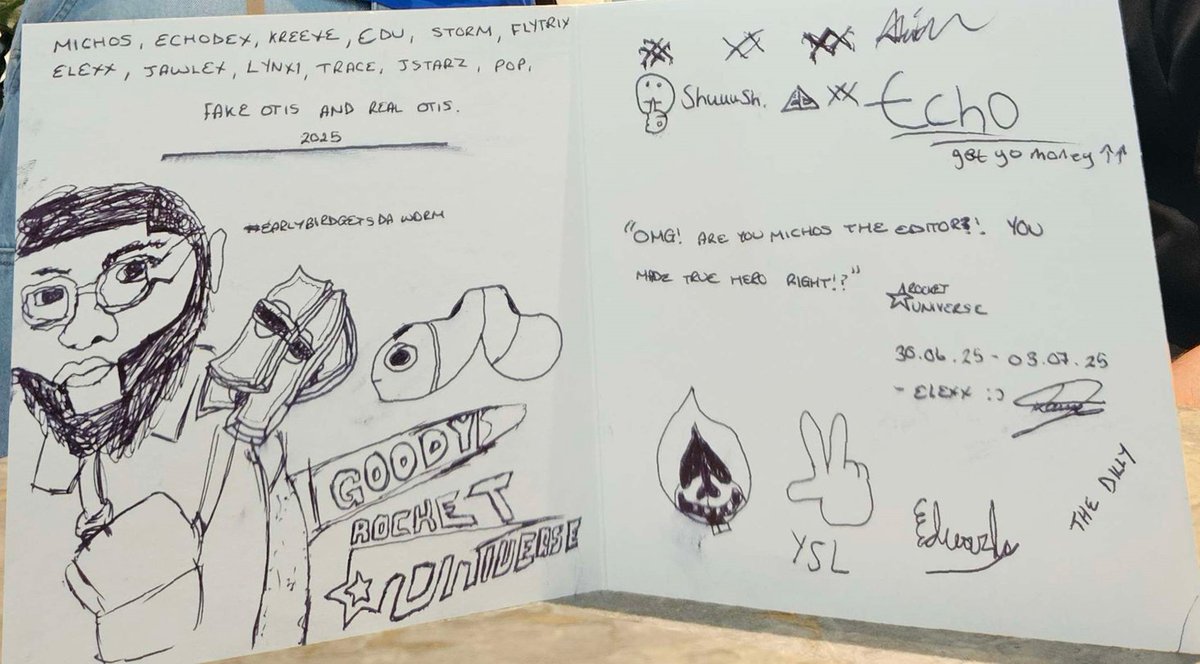 MICHOS, ECHODEX, KREEYE, EDU, STORM, FLYTRIX
ELEXX, JAWLEX, LYNX1, TRACE, JSTARZ, POP,
FAKE OTIS AND REAL OTIS.
2025
#EARLYBIRDGETSDAWORM
GOODY
ROCKET
UNIVERSE
XX
ShuuuSh.
XX
Echo
get yo money ↑↑
"OMG! ARE YOU MICHOS THE EDITOR?! YOU
MADE TRUE HERO RIGHT!?"
ROCKET
UNIVERSE
30.06.25 - 03.07.25
- ELEXX :)
YSL
Edwards
THE DILLY